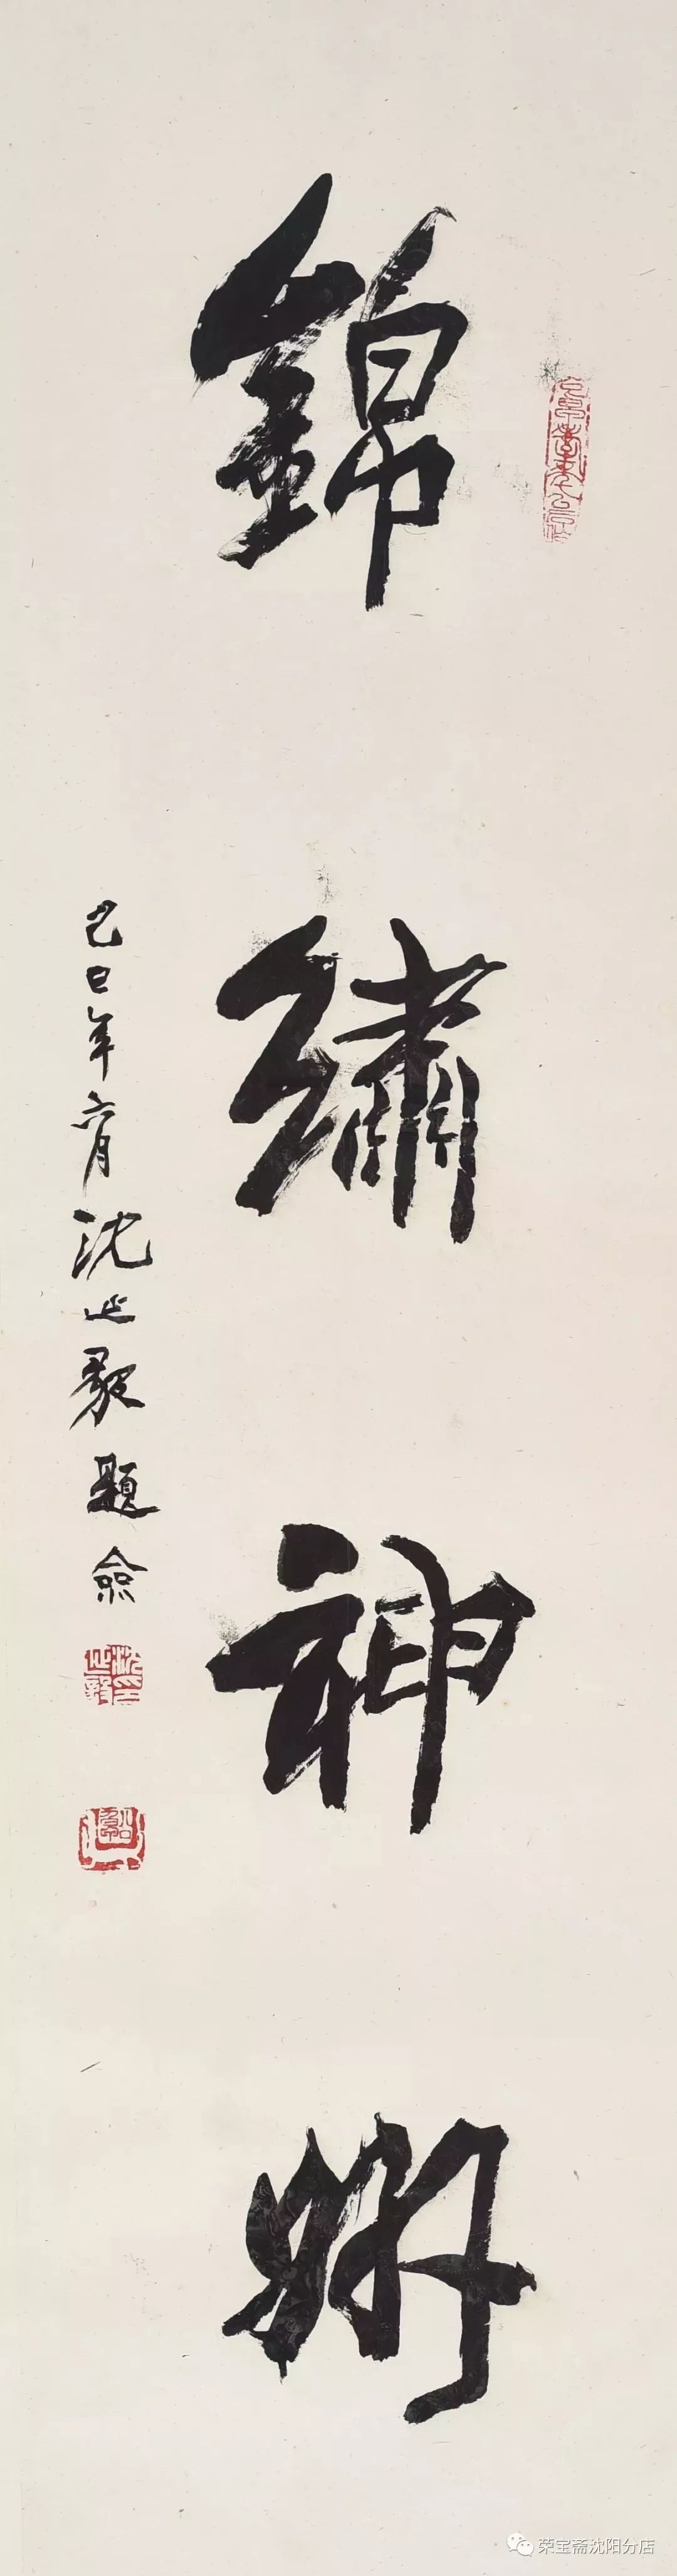 錦繡神州
己巳年六月沈延毅題僉
荣宝斋沈阳分店